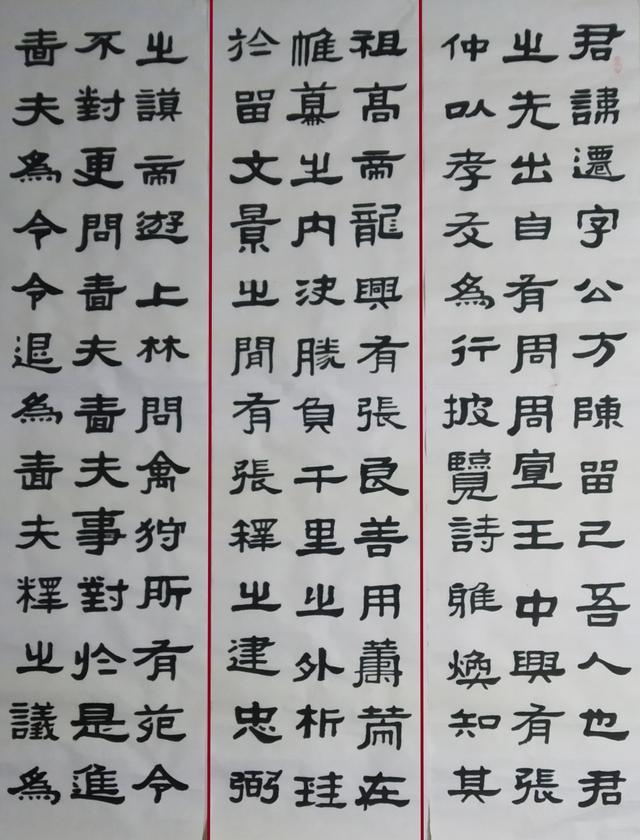 君諱遷字公方陳留己吾人也君
之先出自有周周宣王中興有張
仲以孝友為行披覽詩雅煥知其
祖高帝龍興有張良善用籌策在
帷幕之内決勝負千里之外析珪
於留文景之間有張釋之建忠弼
之謨帝遊上林問禽狩所有苑令
不對更問嗇夫嗇夫事對於是進
嗇夫為令令退為嗇夫釋之議為